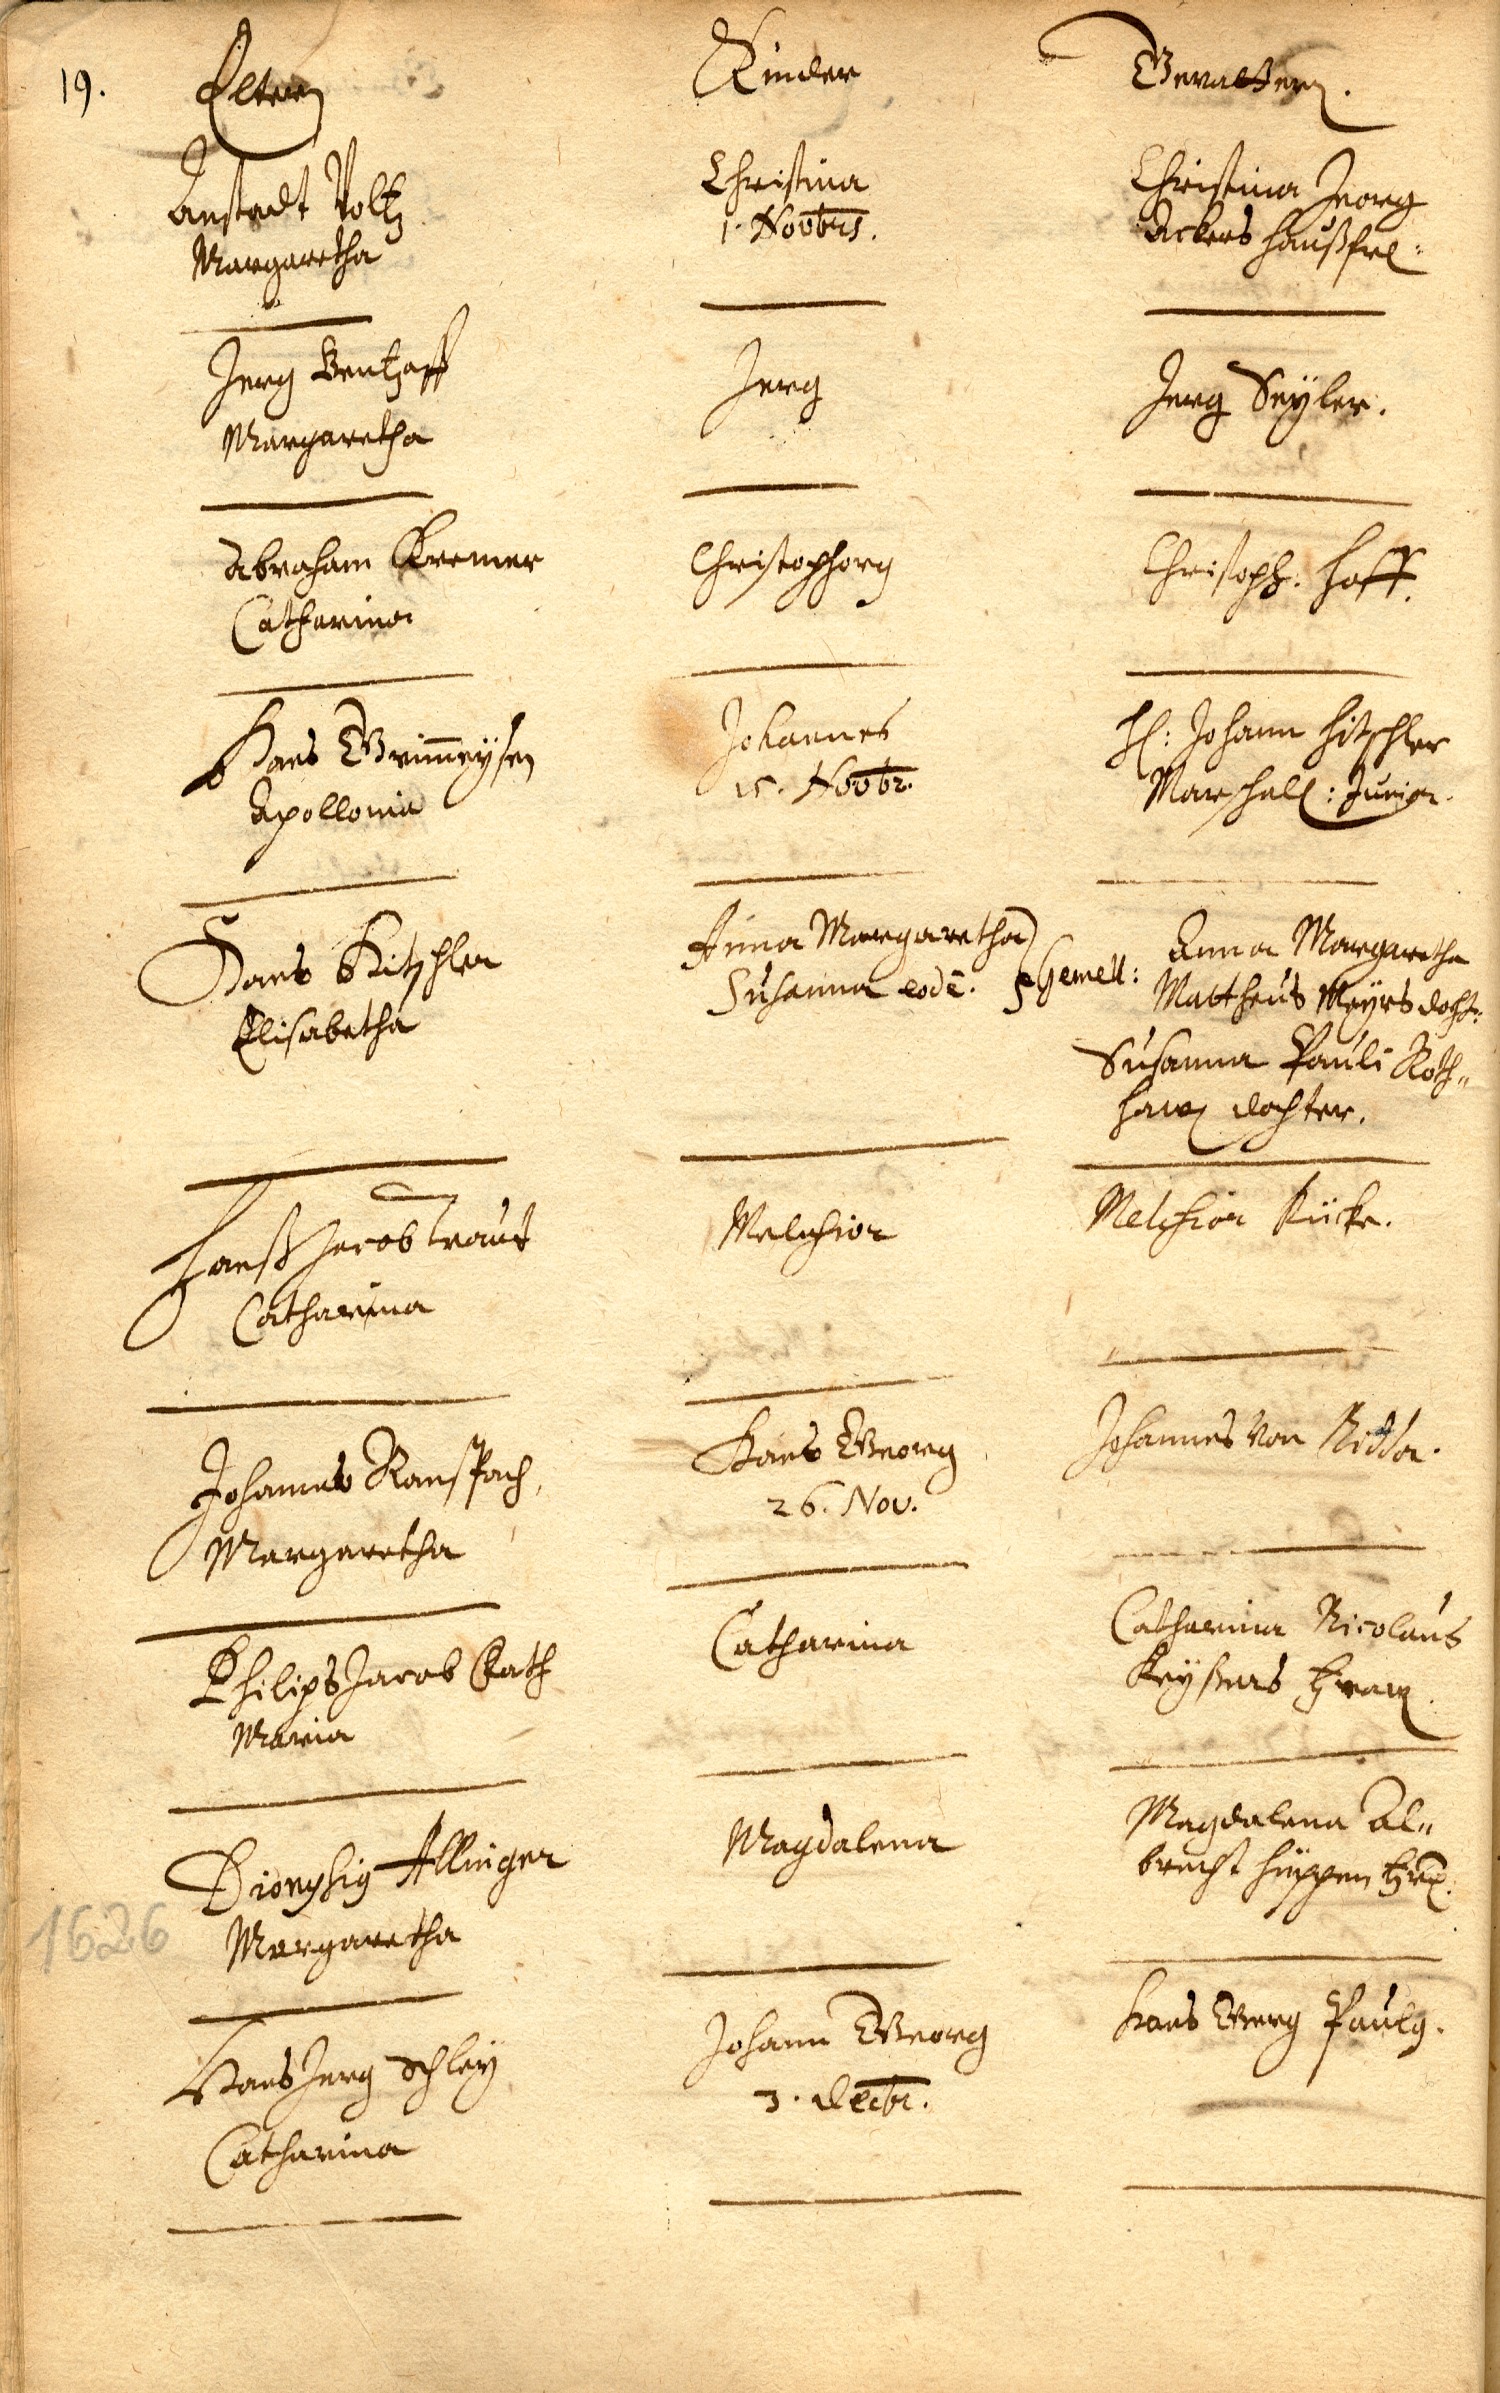 19.
Eltern
Kinder
Gevattern.
Anstadt Voltz
Margaretha
Christina
1. Novbris.
Christina Jeorg
Ackers haußfr:
Jerg Bentzaff
Margaretha
Jerg
Jerg Seÿler.
Abraham Kremer
Catharina
Christophorg
Christoph. Hoff.
Hans
Apollonia
Johannes
15. Novbr.
H: Johann Hitschler
Marschall: Junior.
Hans Hitzschler
Elisabetha
Anna Margaretha
Susanna eodē. Gemell:
Anna Margaretha
Mattheus Meÿrs docht:
Susanna Pauli Roth-
hans dochter.
Hanß Jacob Traut
Catharina
Melchior
Melchior Rücker.
Johannes Ranspach,
Margaretha
Hans Georg
26. Nov.
Johannes von Nidda.
Philips Jacob Rath
Maria
Catharina
Catharina Nicolaus
Keÿsers
Dionysig Allinger
Margaretha
Magdalena
Magdalena Al-
brecht
1626
Hans Jerg Schleÿ
Catharina
Johann Georg
3. Decbr.
Hans Gerg Paulg.